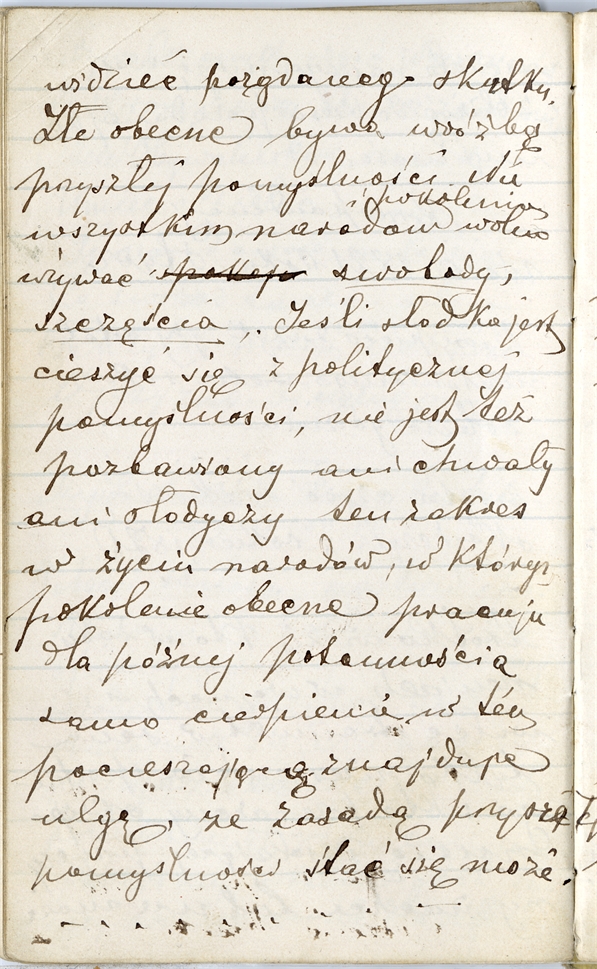 widzieć pożądanego skutku.
Złe obecne bywa wróżbą
przyszłej pomyślności. Nie
wszystkim narodom i pokoleniom wolno
używać spokoju swobody,
szczęścia, Jeśli słodka jest
cieszyć się z politycznej
pomyślności, nie jest też
pozbawiony ani chwały
ani słodyczy ten zakres
w życiu narodów, w którym
pokolenie obecne pracuje
dla późnej potomności a
samo cierpienie w tém
pocieszającą znajduje
ulgę, że zasadą przyszłej
pomyślności stać się może.